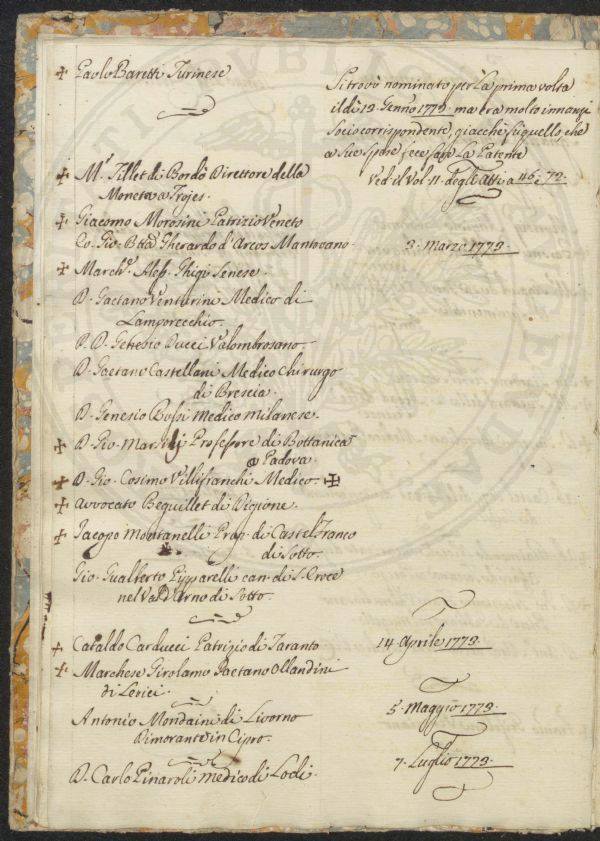 ✠ Paolo Baretti Turinese
Si trovò nominato per la prima volta
il dì 13. Genn.o 1773. ma era molto innanzi
Socio corrispondente, giacchè fu quello, che
a sue spese fece fare La Patente
Ved. il Vol. 11. degli Atti a 46. e 72.
✠ M.r Tillet di Bordò Direttore della
Moneta a Trojes.
✠ Giacomo Morosini Patrizio Veneto
Co. Gio. Btta Gherardo d'Arcos Mantovano.
3. Marzo 1773.
✠ March.e Aless. Chigi Senese.
D. Gaetano Venturini Medico di
Lamporecchio.
P. D. Ducci Valombrosano.
D. Gaetano Castellani Medico Chirurgo
di Brescia.
D. Genesio Bossi Medico Milanese.
✠ D. Gio. Marsilj Professore di Bottanica
a Padova.
✠ D. Gio. Cosimo Villifranchi Medico. ✠
✠ Avvocato Beguillet di Digione.
✠ Jacopo Montanelli Prop. di Castel Franco
di Sotto.
Gio. Gualberto Pipparelli can. di S. Croce
nel Vald'Arno di Sotto.
✠ Cataldo Carducci Patrizio di Taranto
14. Aprile 1773.
✠ Marchese Girolamo Gaetano Ollandini
di Lerici.
Antonio Mondaini di Livorno
Dimorante in Cipro.
5. Maggio 1773.
D. Carlo Pinaroli medico di Lodi.
7. Luglio 1773.